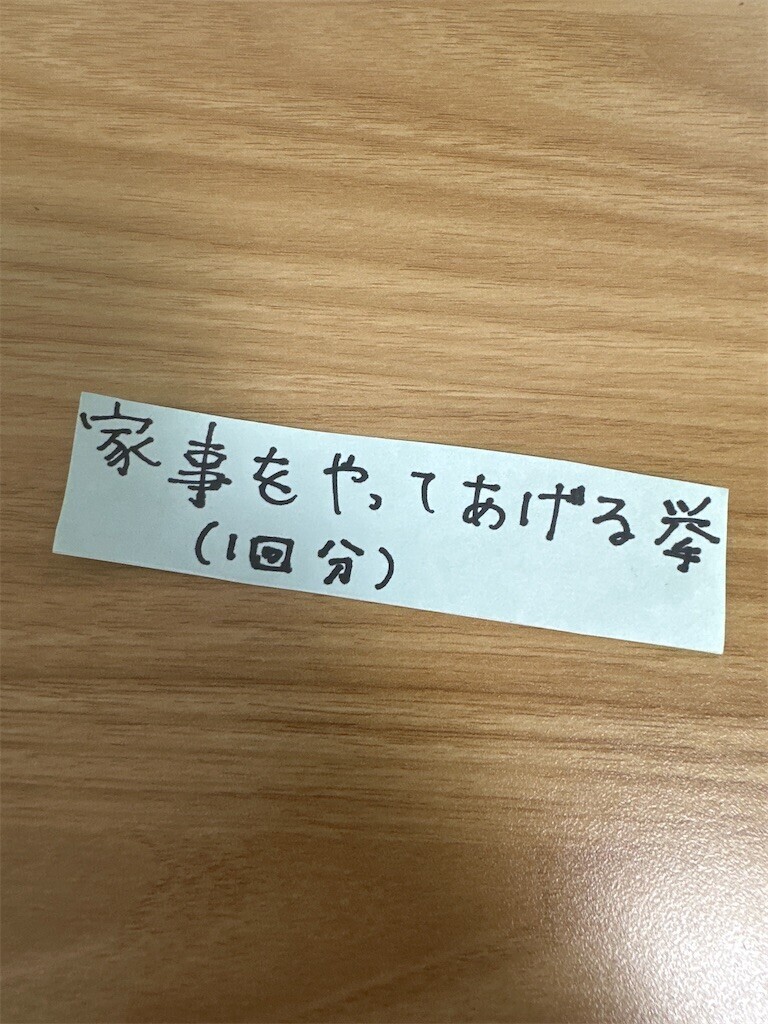 家事をやってあげる挙
(1回分)